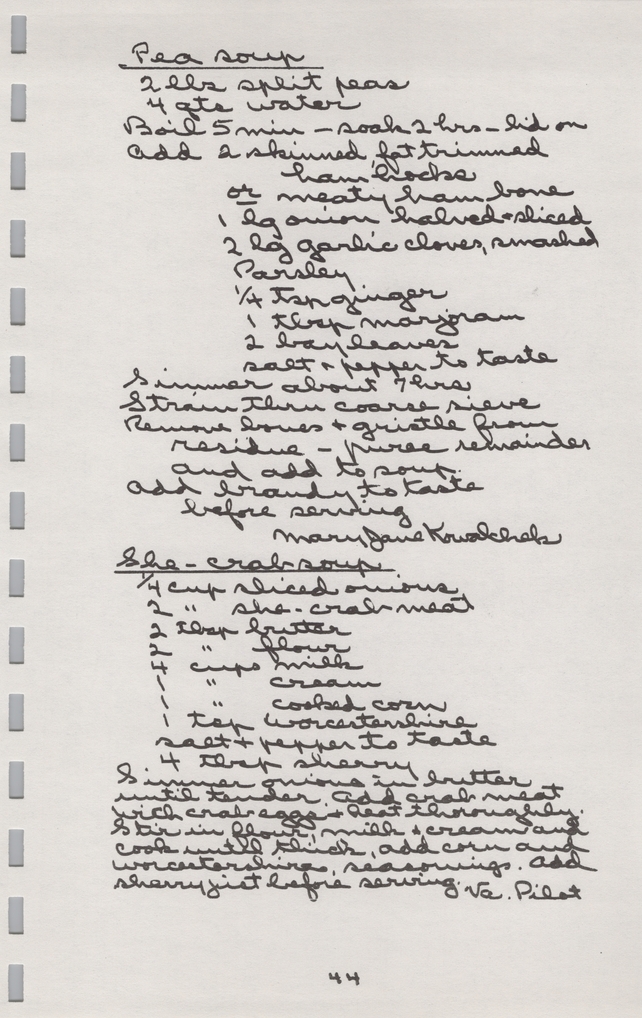 Pea soup
2 lbs split peas
4 qts water
Boil 5 min - soak 2 hrs - lid on
Add 2 skinned, fat trimmed
ham hocks
or meaty ham bone
1 lg onion halved + sliced
2 lg garlic cloves, smashed
Parsley
1/4 tsp ginger
1 tbsp marjoram
2 bay leaves
salt + pepper to taste
Simmer about 7 hrs
Strain thru coarse sieve
Remove bones + gristle from
residue - puree remainder
and add to soup.
Add brandy to taste
before serving
Mary Jane Kowalchek
She-crab soup
1/4 cup sliced onions
2 " she-crab meat
2 tbsp butter
2 " flour
4 cups milk
1 " cream
1 " cooked corn
1 tsp Worcestershire
salt + pepper to taste
4 tbsp sherry
Simmer onions in butter
until tender. Add crab meat
with crab eggs + heat thoroughly.
Stir in flour, milk + cream and
cook until thick, add corn and
worcestershire, seasonings. Add
sherry jist before serving. Va. Pilot
44